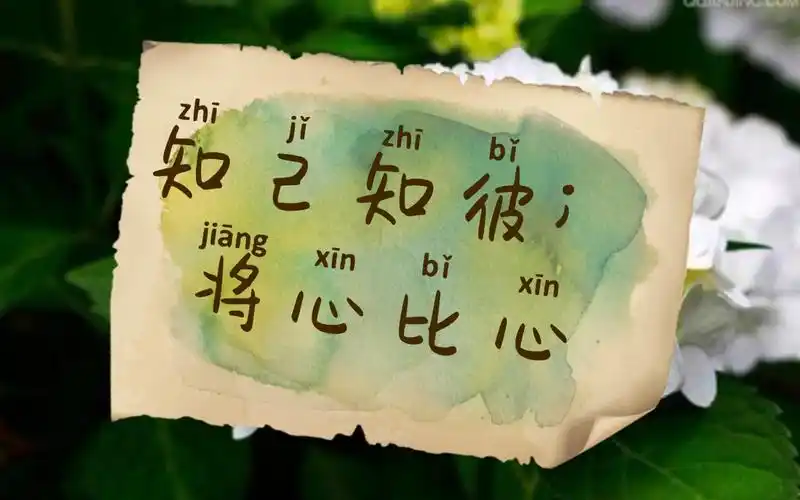 zhī jǐ zhī bǐ
知己知彼；
jiāng xīn bǐ xīn
将心比心